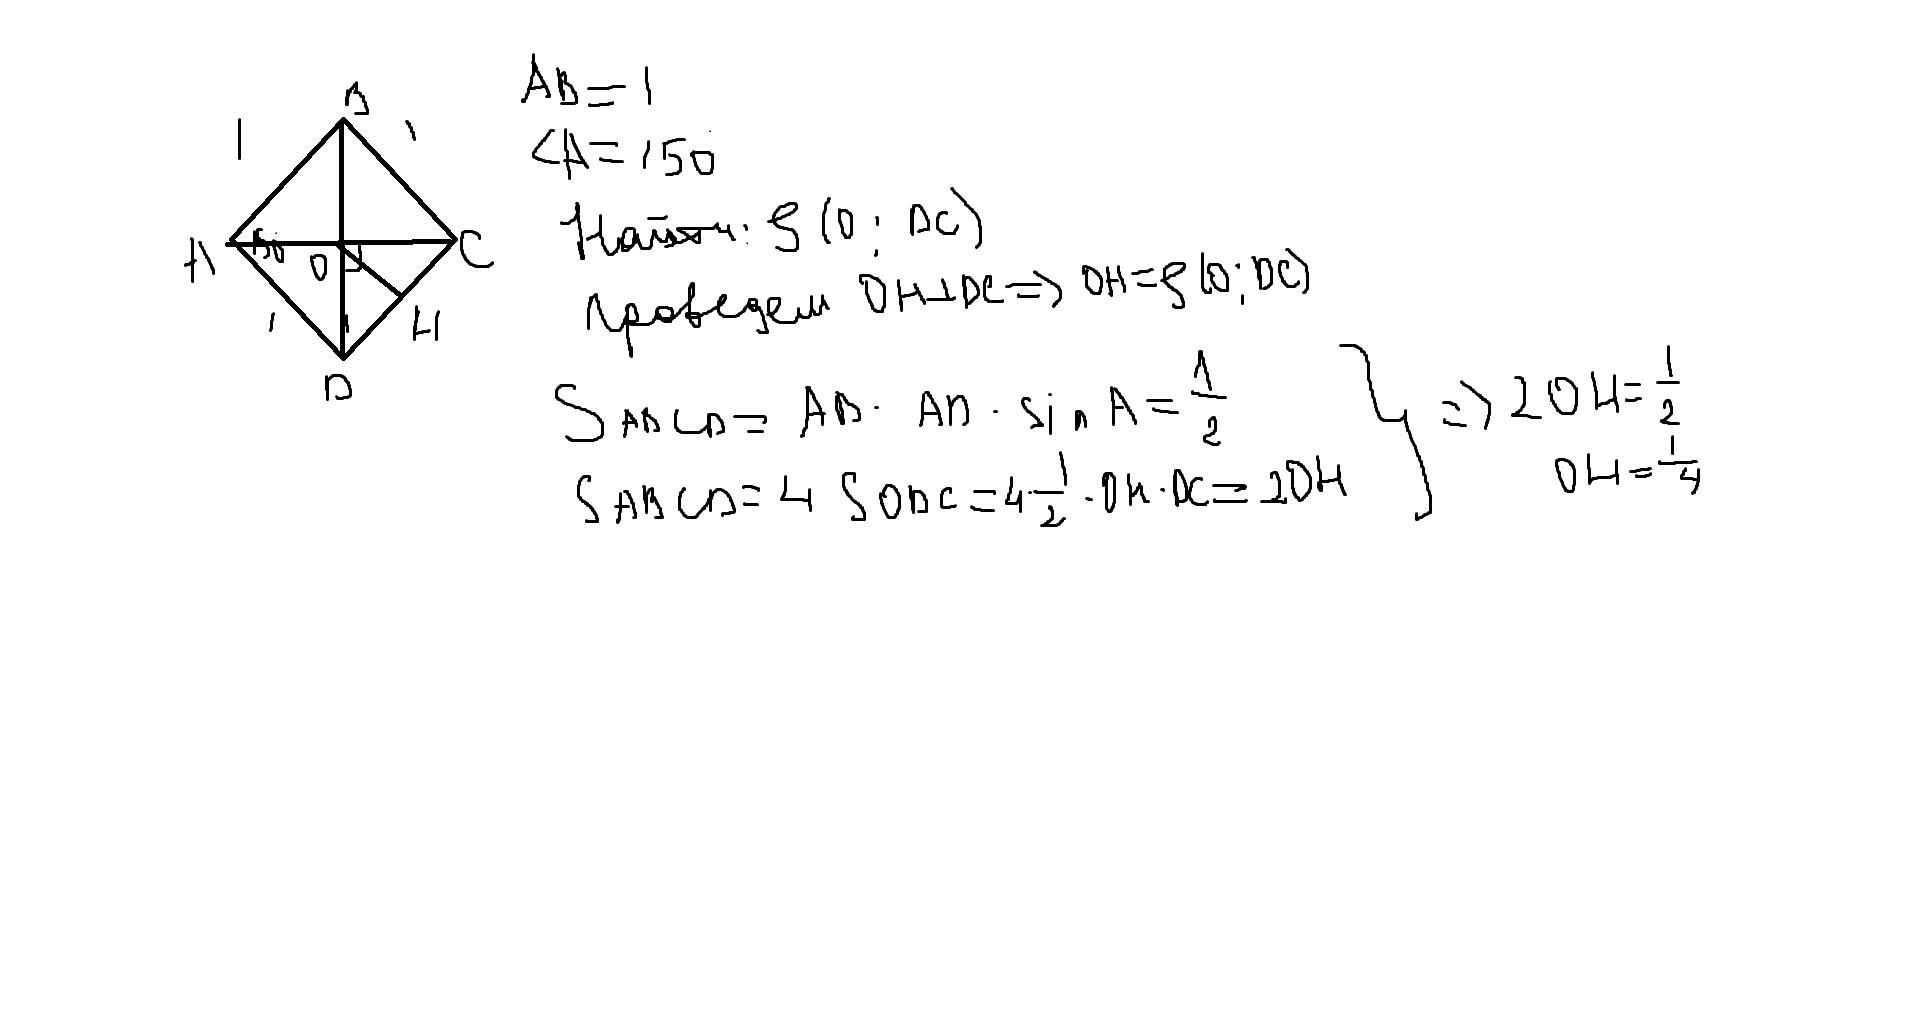 B
1
1
A
150
O
C
1
1
H
D
AB = 1
∠A = 150
Найти: ρ(O; DC)
Проведем OH⊥DC => OH = ρ(O; DC)
S ABCD = AB · AD · sin A = 1/2
S ABCD = 4 S ODC = 4 · 1/2 · OH · DC = 2OH
=> 2OH = 1/2
OH = 1/4